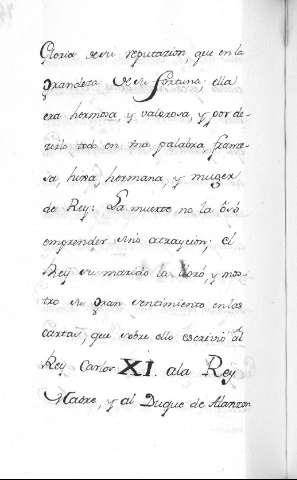 Gloria de su reputazion, que en la
grandeza de su fortuna; ella
era hermosa, y valerosa, y por de-
zirlo todo en una palabra, france-
sa, hixa hermana, y muger
de Rey: La muerte no la
emprender sino atraycion; el
Rey su marido la lloró, y mos-
tro su gran sentimiento en las
cartas, que sobre ello escrivió al
Rey Carlos XI. ala Rey
Madre, y al Duque de Alanzon